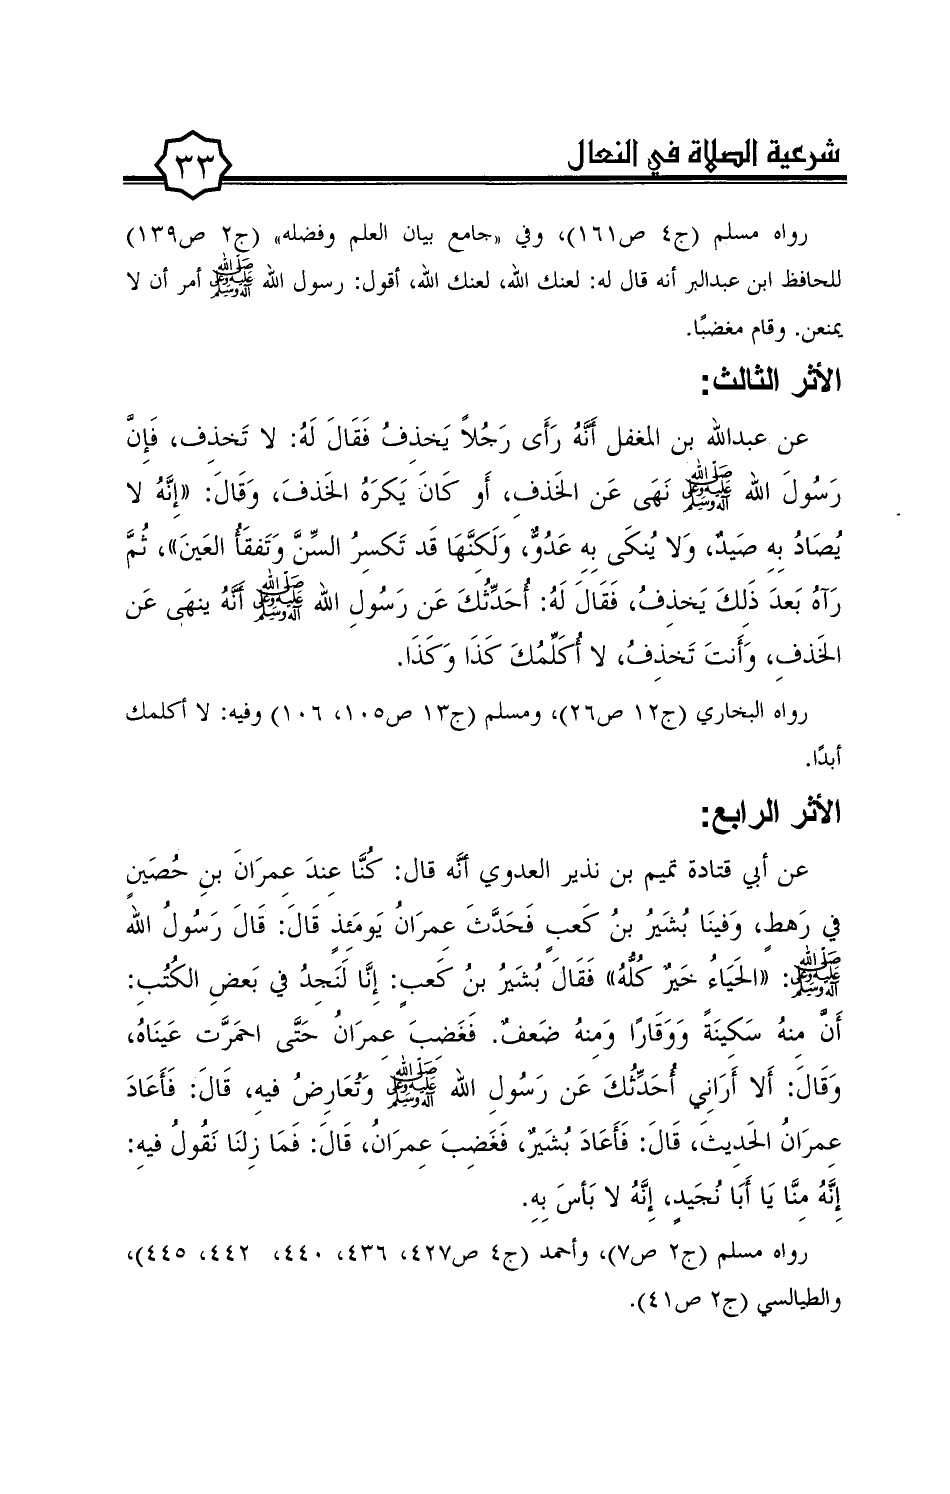 شرعية الصلاة في النعال ٣٣
رواه مسلم (ج٤ ص١٦١)، وفي «جامع بيان العلم وفضله» (ج٢ ص١٣٩)
للحافظ ابن عبدالبر أنه قال له: لعنك الله، لعنك الله، أقول: رسول الله ﷺ أمر أن لا
يمنعن. وقام مغضبًا.
الأثر الثالث:
عن عبدالله بن المغفل أَنَّهُ رَأَى رَجُلاً يَخذِفُ فَقَالَ لَهُ: لا تَخذِف، فَإِنَّ
رَسُولَ الله ﷺ نَهَى عَن الخَذفِ، أَو كَانَ يَكرَهُ الخَذفَ، وَقَالَ: «إِنَّهُ لا
يُصَادُ بِهِ صَيدٌ، وَلا يُنكَى بِهِ عَدُوٌّ، وَلَكِنَّهَا قَد تَكسِرُ السِّنَّ وَتَفقَأُ العَينَ»، ثُمَّ
رَآهُ بَعدَ ذَلِكَ يَخذِفُ، فَقَالَ لَهُ: أُحَدِّثُكَ عَن رَسُولِ الله ﷺ أَنَّهُ ينهَى عَن
الخَذفِ، وَأَنتَ تَخذِفُ، لا أُكَلِّمُكَ كَذَا وَكَذَا.
رواه البخاري (ج١٢ ص٢٦)، ومسلم (ج١٣ ص١٠٥، ١٠٦) وفيه: لا أكلمك
أبدًا.
الأثر الرابع:
عن أبي قتادة تميم بن نذير العدوي أنَّه قال: كُنَّا عِندَ عِمرَانَ بنِ حُصَينٍ
في رَهطٍ، وَفِينَا بُشَيرُ بنُ كَعبٍ فَحَدَّثَ عِمرَانُ يَومَئِذٍ قَالَ: قَالَ رَسُولُ الله
ﷺ: «الحَيَاءُ خَيرٌ كُلُّهُ» فَقَالَ بُشَيرُ بنُ كَعبٍ: إِنَّا لَنَجِدُ في بَعضِ الكُتُبِ:
أَنَّ مِنهُ سَكِينَةً وَوَقَارًا وَمِنهُ ضَعفٌ. فَغَضِبَ عِمرَانُ حَتَّى احمَرَّت عَينَاهُ،
وَقَالَ: أَلا أَرَانِي أُحَدِّثُكَ عَن رَسُولِ الله ﷺ وَتُعَارِضُ فِيهِ، قَالَ: فَأَعَادَ
عِمرَانُ الحَدِيثَ، قَالَ: فَأَعَادَ بُشَيرٌ، فَغَضِبَ عِمرَانُ، قَالَ: فَمَا زِلنَا نَقُولُ فِيهِ:
إِنَّهُ مِنَّا يَا أَبَا نُجَيدٍ، إِنَّهُ لا بَأسَ بِهِ.
رواه مسلم (ج٢ ص٧)، وأحمد (ج٤ ص٤٢٧، ٤٣٦، ٤٤٠، ٤٤٢، ٤٤٥)،
والطيالسي (ج٢ ص٤١).